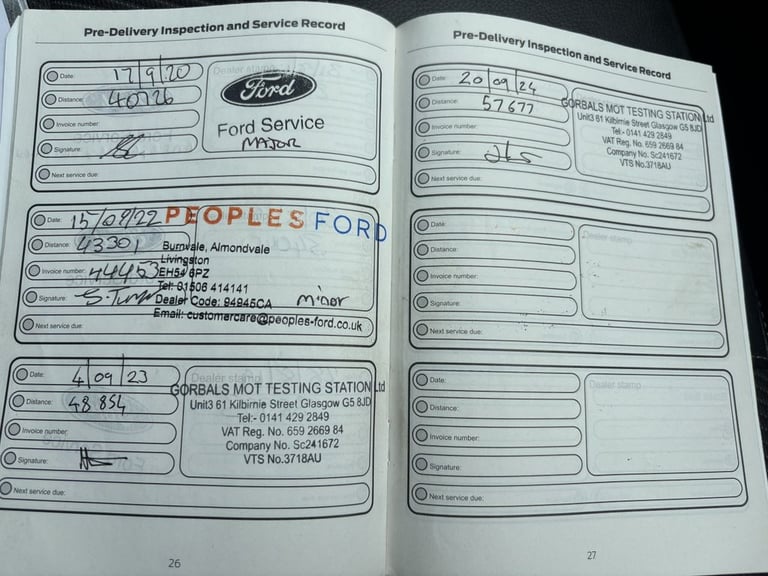 Pre-Delivery Inspection and Service Record
Date: 17/9/20
Dealer stamp
Distance: 40726
Ford
Invoice number:
Ford Service
MAJOR
Signature:
Next service due:
Date: 15/09/22
PEOPLES FORD
Distance: 43301
Burnvale, Almondvale
Livingston
Invoice number: 44463
EH54 6PZ
Tel: 01506 414141
Signature:
Dealer Code: 94945CA
minor
Email: customercare@peoples-ford.co.uk
Next service due:
Date: 4/09/23
Dealer stamp
GORBALS MOT TESTING STATION Ltd
Distance: 48854
Unit3 61 Kilbirnie Street Glasgow G5 8JD
Tel:- 0141 429 2849
Invoice number:
VAT Reg. No. 659 2669 84
Company No. Sc241672
Signature:
VTS No.3718AU
Next service due:
26
Pre-Delivery Inspection and Service Record
Date: 20/09/24
Distance: 57677
GORBALS MOT TESTING STATION Ltd
Unit3 61 Kilbirnie Street Glasgow G5 8JD
Invoice number:
Tel:- 0141 429 2849
VAT Reg. No. 659 2669 84
Signature:
Company No. Sc241672
VTS No.3718AU
Next service due:
Date:
Dealer stamp
Distance:
Invoice number:
Signature:
Next service due:
Date:
Dealer stamp
Distance:
Invoice number:
Signature:
Next service due:
27